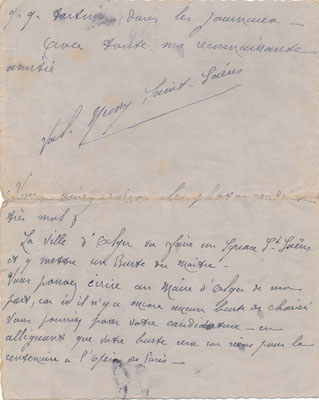 dans les journaux —
avec toute ma reconnaissante
amitié
Saint-Saëns
très mal
La Ville d'Alger va faire un Square St Saëns
et y mettra un Buste du maître —
Vous pouvez écrire au Maire d'Alger de ma
part, car ici il n'y a encore aucun buste de choisi
Vous pourrez poser votre candidature — en
alléguant que votre buste pour le
centenaire à l'Opéra de Paris —